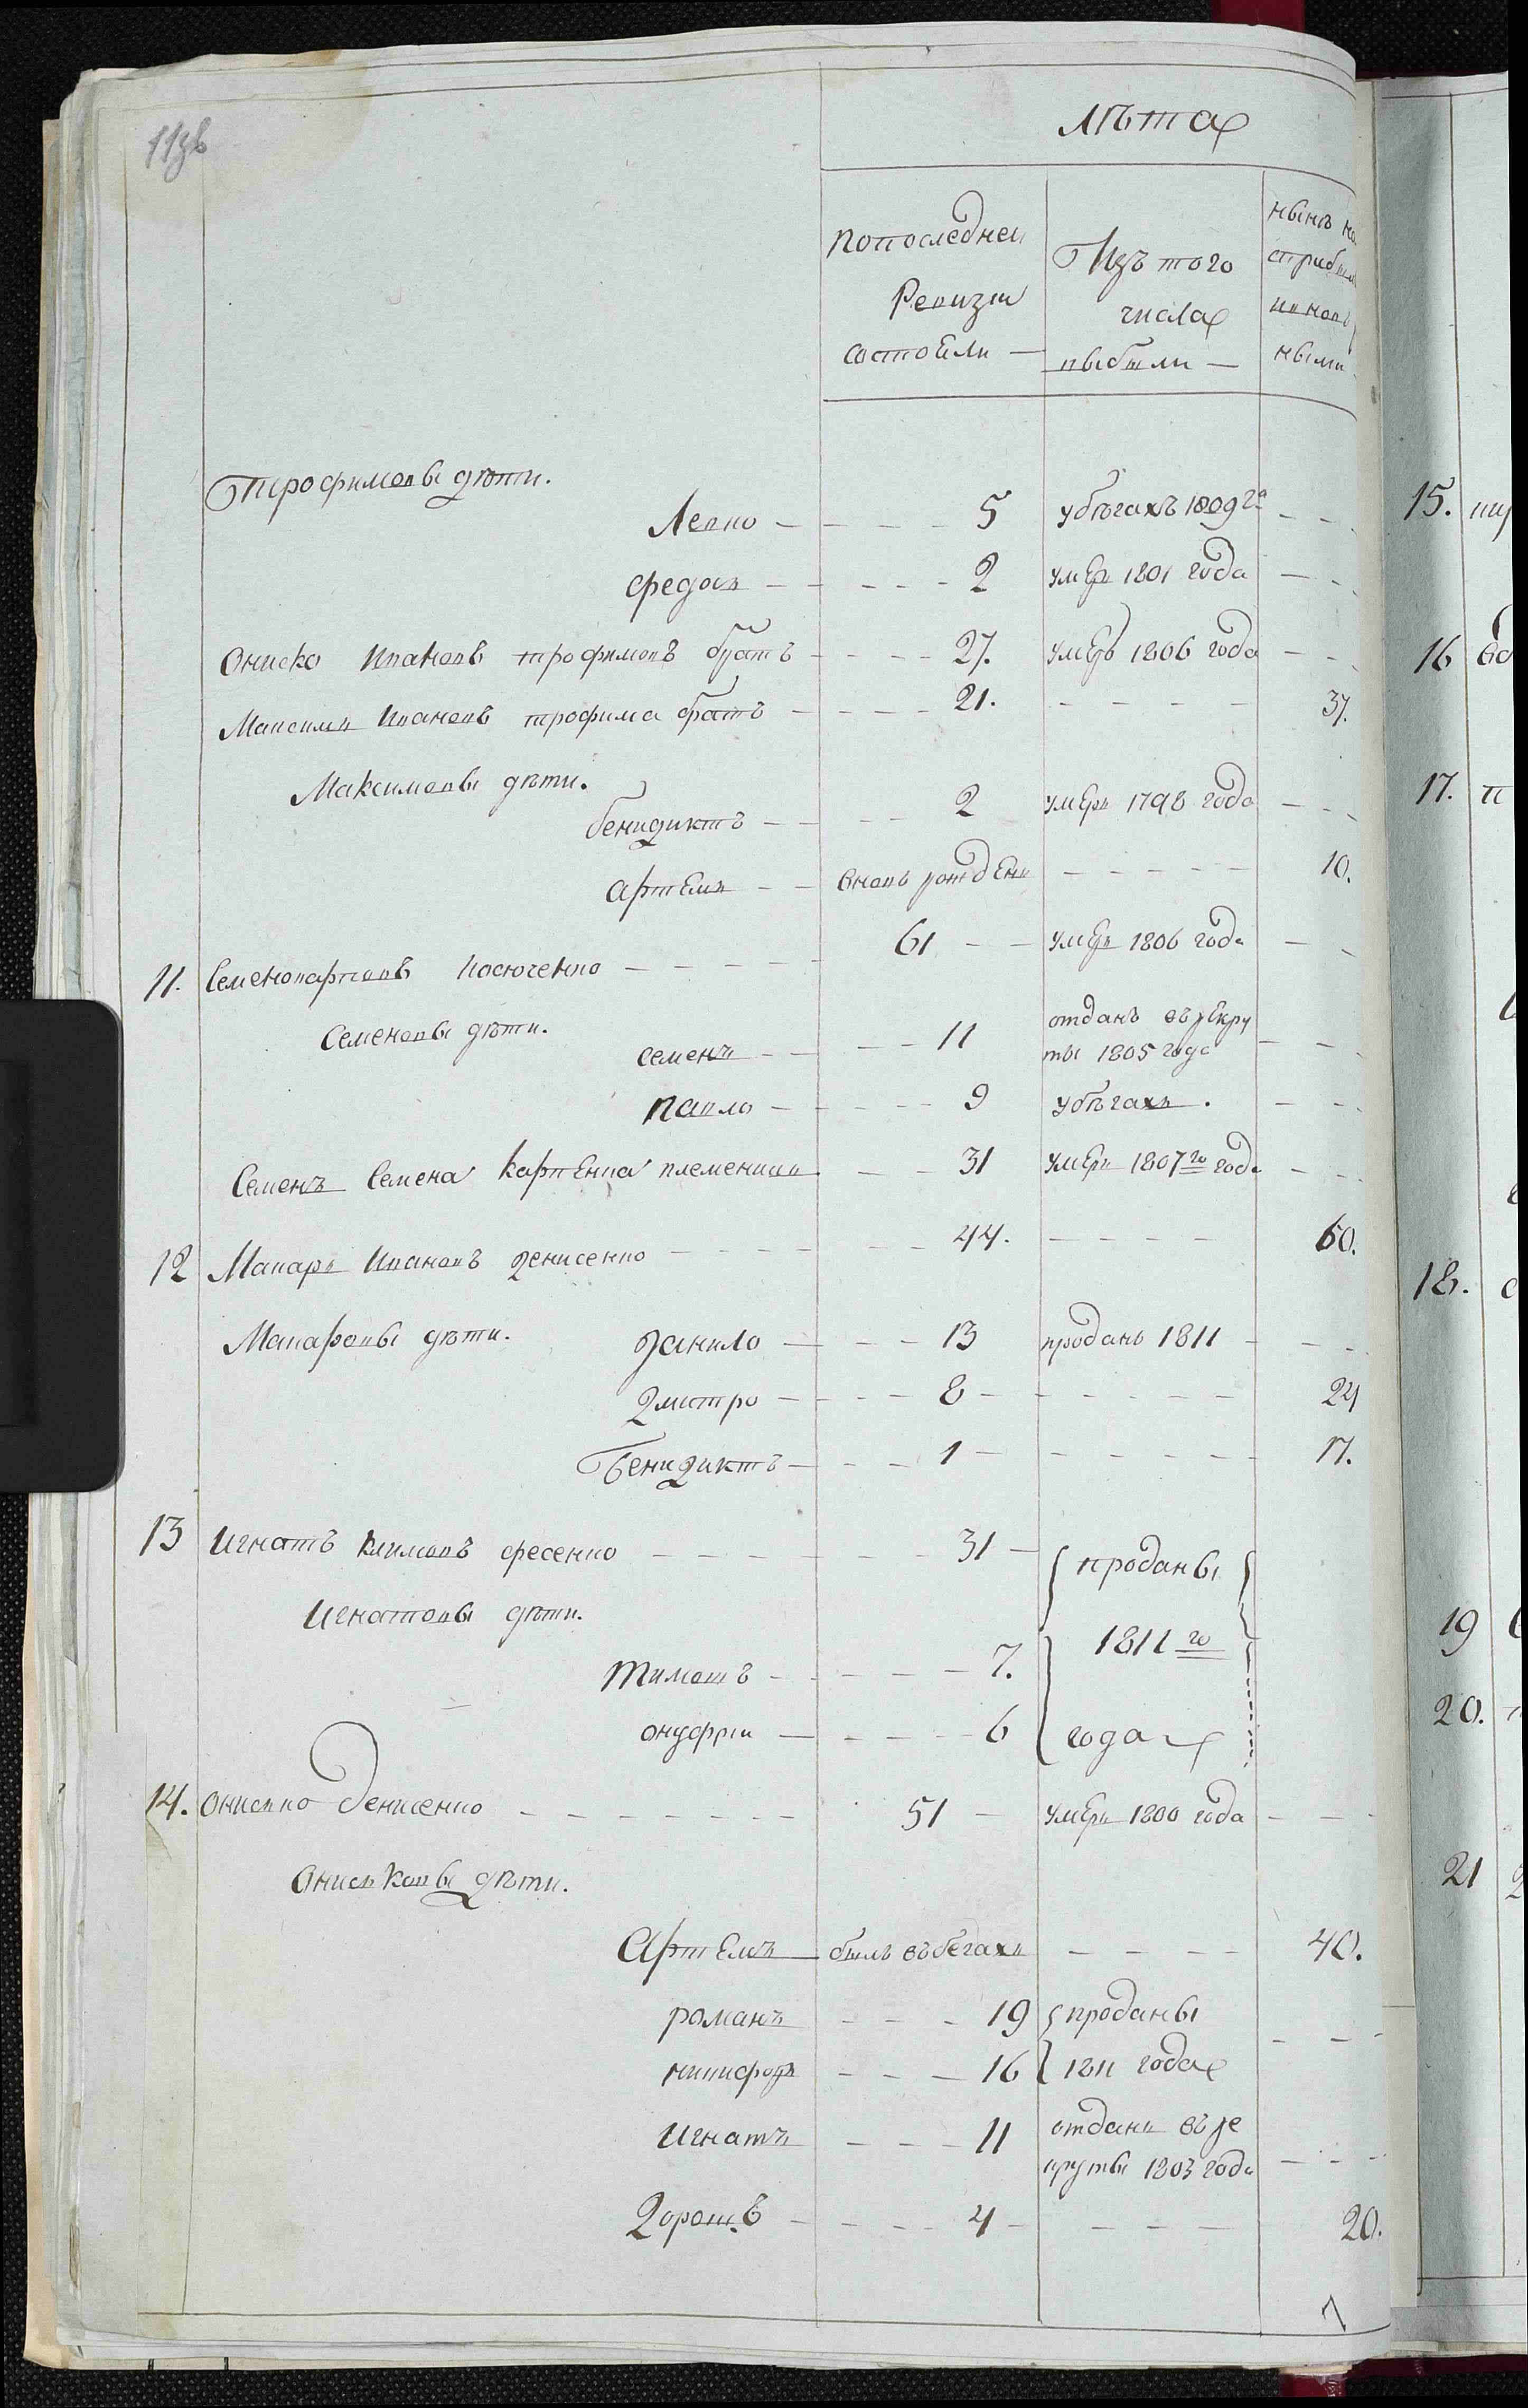 11зв
лѣта
попоследней
Ревизіи
состоели —
Изъ того
числа
выбыли —
нынѣ на
ными
Трофимовы дѣти.
Левко — 5 убѣгахъ 1809 го
Федоръ — 2 умеръ 1801 года
Ониско Ивановъ трофимовъ братъ 27. умеръ 1806 года
Максимъ Ивановъ трофима братъ 21. 37.
Максимовы дѣти.
бенидиктъ — 2 умеръ 1798 года
артемъ — вновь рожденъ 10.
11. Семенъ карповъ 61 умеръ 1806 года
Семеновы дѣти.
семенъ — 11 отданъ въ рекру
ты 1805 года
павло — 9 убѣгахъ.
Семенъ Семена карпенка племенникъ 31 умеръ 1807го года
12 Макаръ Ивановъ денисенко 44. 60.
Макаровы дѣти. данило — 13 проданъ 1811
дмитро — 8 24
Бенидиктъ — 1 17.
13 Игнатъ климовъ фесенко 31 проданы
Игнатовы дѣти. 1811го
тимошъ — 7.
онуфрій — 6 года
14. Ониско Денисенко 51 умеръ 1800 года
Ониськовы дѣти.
Артемъ былъ въбегахъ 40.
романъ 19 проданы
никифоръ 16 1811 года
Игнатъ 11 отданъ въ ре
круты 1803 года
дорошъ 4 20.
7
15.
16
17.
18.
19
20.
21